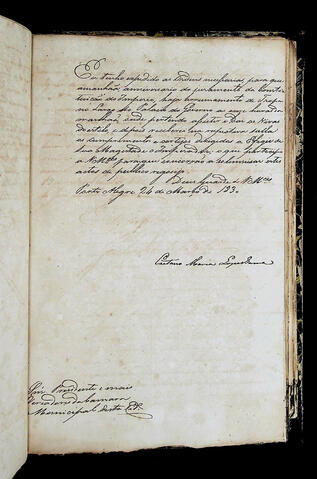 Eu tenho expedido as Ordens necessarias para que
amanhãa, anniversario do juramento da Consti-
tuição do Imperio, haja armamento de Tropa
no Largo do Palacio do Governo as onze horas da
manhãa, onde pretendo assistir e Dar os Vivas
do estilo, e depois receberei
os cumprimentos e cortejos dirigidos a
Sua Magestade o Imperador: o que participo
a VMces para que concorrão a solemnisar estes
actos de publico regosijo.
Deos Guarde a VMces
Porto Alegre 24 de Março de 183
Caetano Maria Lopes Gama
Snrs Prezidente e mais
Vereadores da Camara
Municipal desta